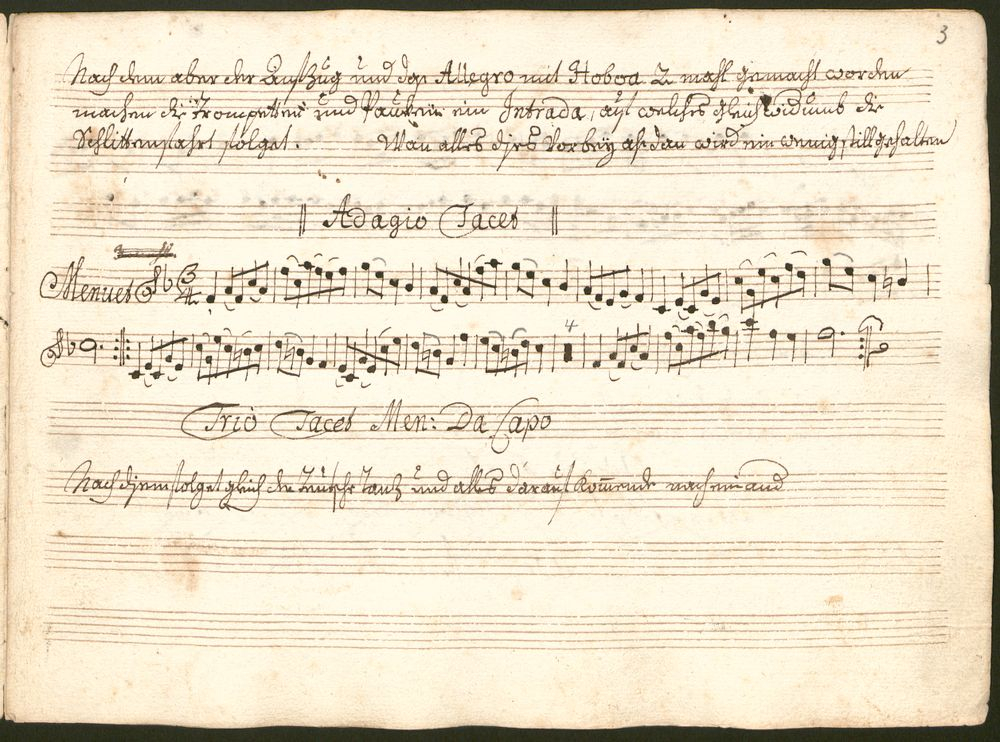 3
Nach dem aber der Aufzug und das Allegro mit Hoboa 2 mahl gemacht worden
machen die Trompetten und Paucken ein Intrada, auf welches gleich widumb die
Schlittenfahrt folget. Wan alles dises Vorbey alsdan wird ein wenig still gehalten
Adagio Tacet
Menuet 3 4
4
Trio Tacet Men: Da Capo
Nach disem folget gleich der Teutsche Tantz und alles darauf Kommende nach einand